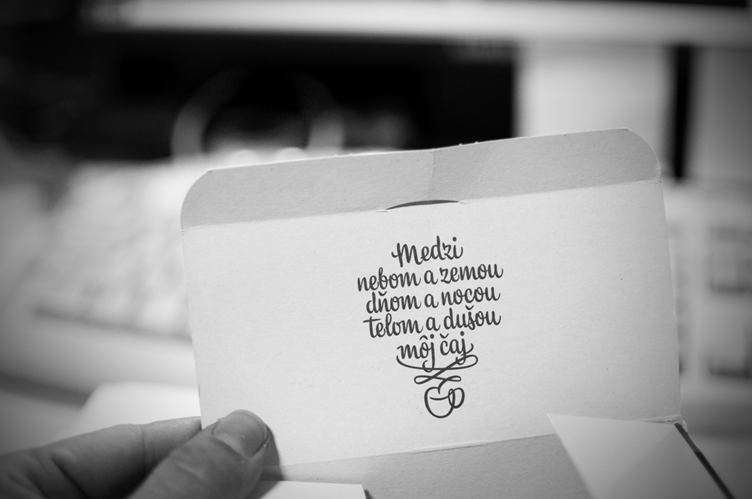 Medzi
nebom a zemou
dňom a nocou
telom a dušou
môj čaj